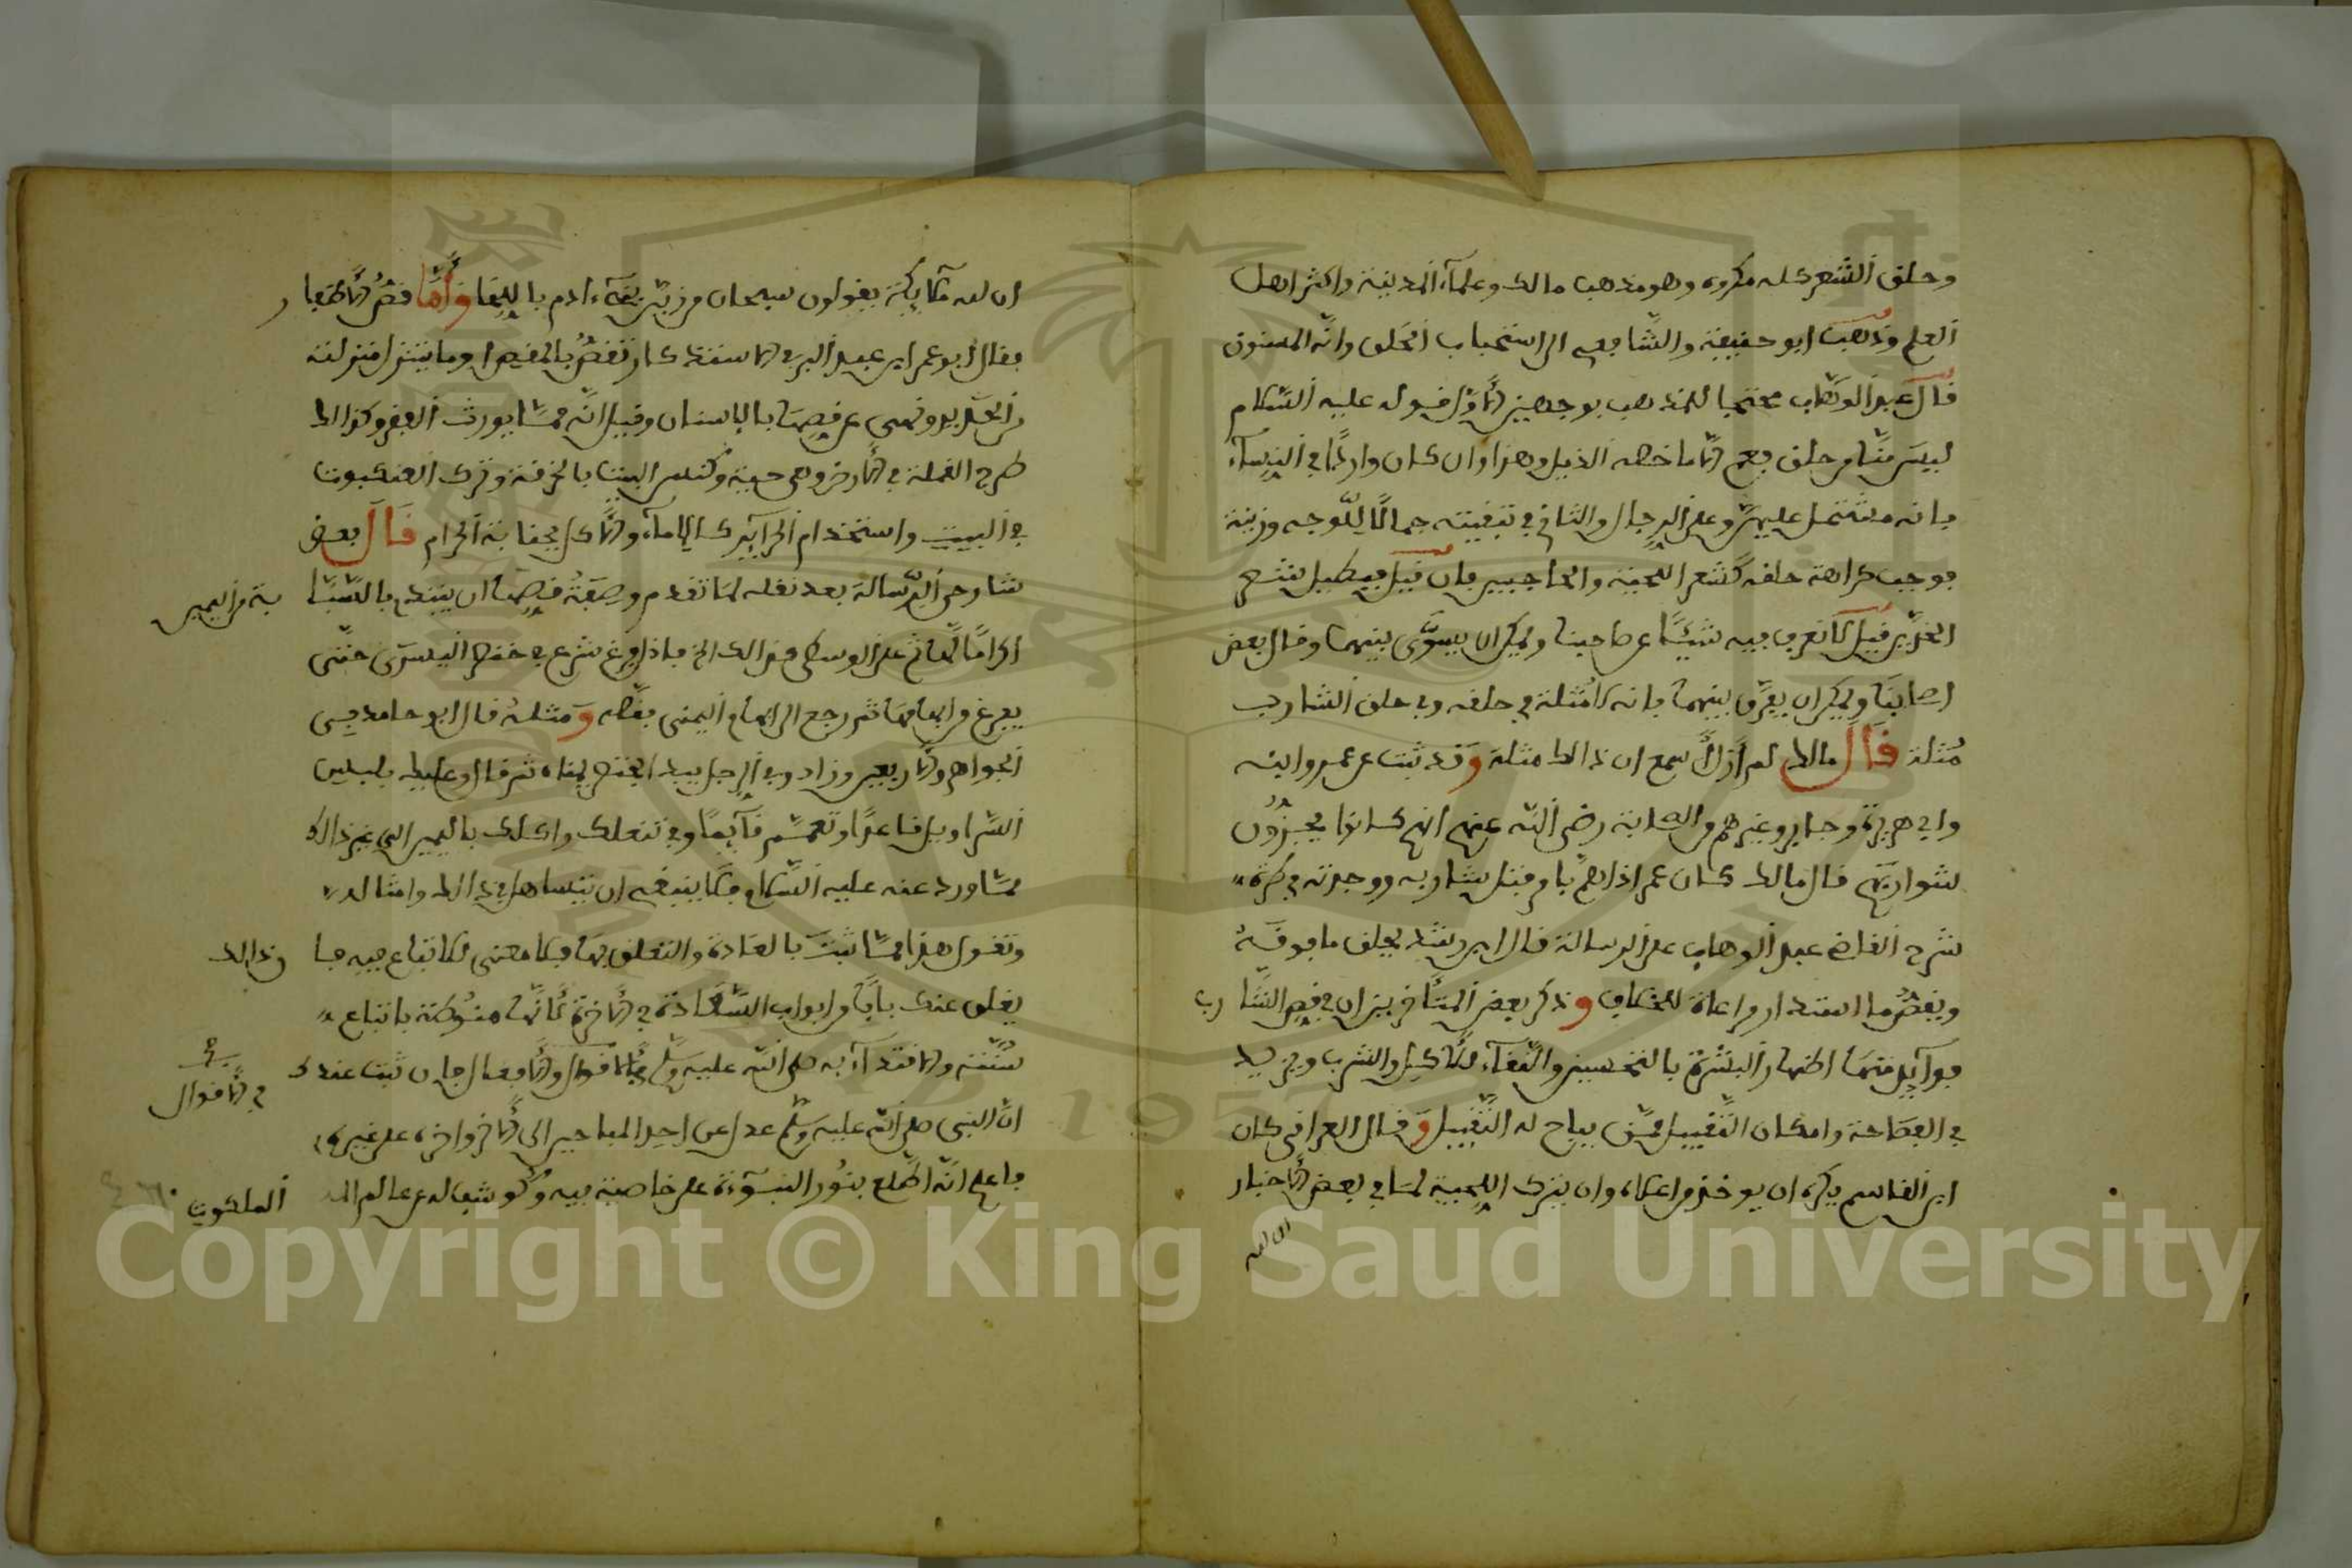 وحلق الشعر كله مكروه وهو مذهب مالك وعلماء المدينة واكثر اهل
العلم وذهب ابو حنيفة والشافعي الى استحباب الحلق وانه المسنون
قال عبد الوهاب محتجا للمذهب بوجهين الأول قوله عليه السلام
ليس منا من حلق يعم الا ما خصه الدليل وهذا وان كان واردا في النساء
فانه مشتمل عليهن وعلى الرجال والثاني في تبقيته جمالا للوجه وزينة
فوجب كراهة حلقه كشعر اللحية والحاجبين فان قيل شعر
الخدين قيل لا نعرف فيه شيئا عن اصحابنا ويمكن ان يسوى بينهما وقال بعض
اصحابنا ويمكن ان يفرق بينهما بانه لا مثلة في حلقه وفي حلق الشارب
مثلة قال مالك لم ازل اسمع ان ذالك مثلة وقد ثبت عن عمر وابنه
وابي هريرة وجابر وغيرهم من الصحابة رضي الله عنهم انهم كانوا يجزون
شواربهم قال مالك كان عمر اذا اهم بامر فتل شاربه ووجدته في طرة
شرح القاضي عبد الوهاب على الرسالة قال ابن رشد يحلق ما فوقه
ويقص ما استدار مراعاة للخلاف وذكر بعض المتأخرين ان في قص الشارب
فوائد منها اظهار البشرة بالتحسين والنقاء للأكل والشرب ويزيد
في الفصاحة وامكان التقبيل ممن يباح له التقبيل وقال العراقي كان
ابن القاسم يكره ان يوخذ من اعلاه وان يترك اللحية لما في بعض الأخبار
ان لله
ان لله ملائكة يقولون سبحان من زين بني ءادم باللحا وأما قص الأظفار
فقال ابو عمر ابن عبد البر في الاستذكار تقص بالمقص او ما يتنزل منزلته
من الحديد ونهى عن قصها بالاسنان وقيل انه مما يورث الفقر وكذالك
طرح القملة في الأرض وهي حية وكنس البيت بالخرقة وترك العنكبوت
في البيت واستخدام الحرائر كالاماء والأكل بجنابة الحرام قال بعض
شارحي الرسالة بعد نقله لما تقدم وصفة قصها ان يبتدي بالسبابة من اليمين
اكراما لها ثم على الوسطى كذالك الخ فاذا فرغ شرع في خنصر اليسرى حتى
يفرغ من ابهامها ثم رجع الى ابهام اليمنى بقصه ومثله قال ابو حامد في
الجواهر والأربعين وزاد وفي الرجل يبدا بخنصر يمناه ثم قال وعليك بلبس
السراويل قاعدا وتعمم قائما وفي تنعلك واكلك باليمين الى غير ذالك
مما ورد عنه عليه السلام فلا ينبغي ان تتساهل في ذالك وامثاله
وتقول هذا مما ثبت بالعادة والتعلق بها فلا معنى للاتباع فيه فان ذالك
يغلق عنك بابا من ابواب السعادة في الأخرة لأنها منوطة باتباع
سنته والاقتداء به صلى الله عليه وسلم في الأقوال والأفعال فان ثبت عندك
في الأقوال
ان النبي صلى الله عليه وسلم عدل عن احد المباحين الى الأخر واثره على غيره
فاعلم انه اطلع بنور النبوءة على خاصية فيه وكوشف له من عالم الملكوت
Copyright © King Saud University
1957